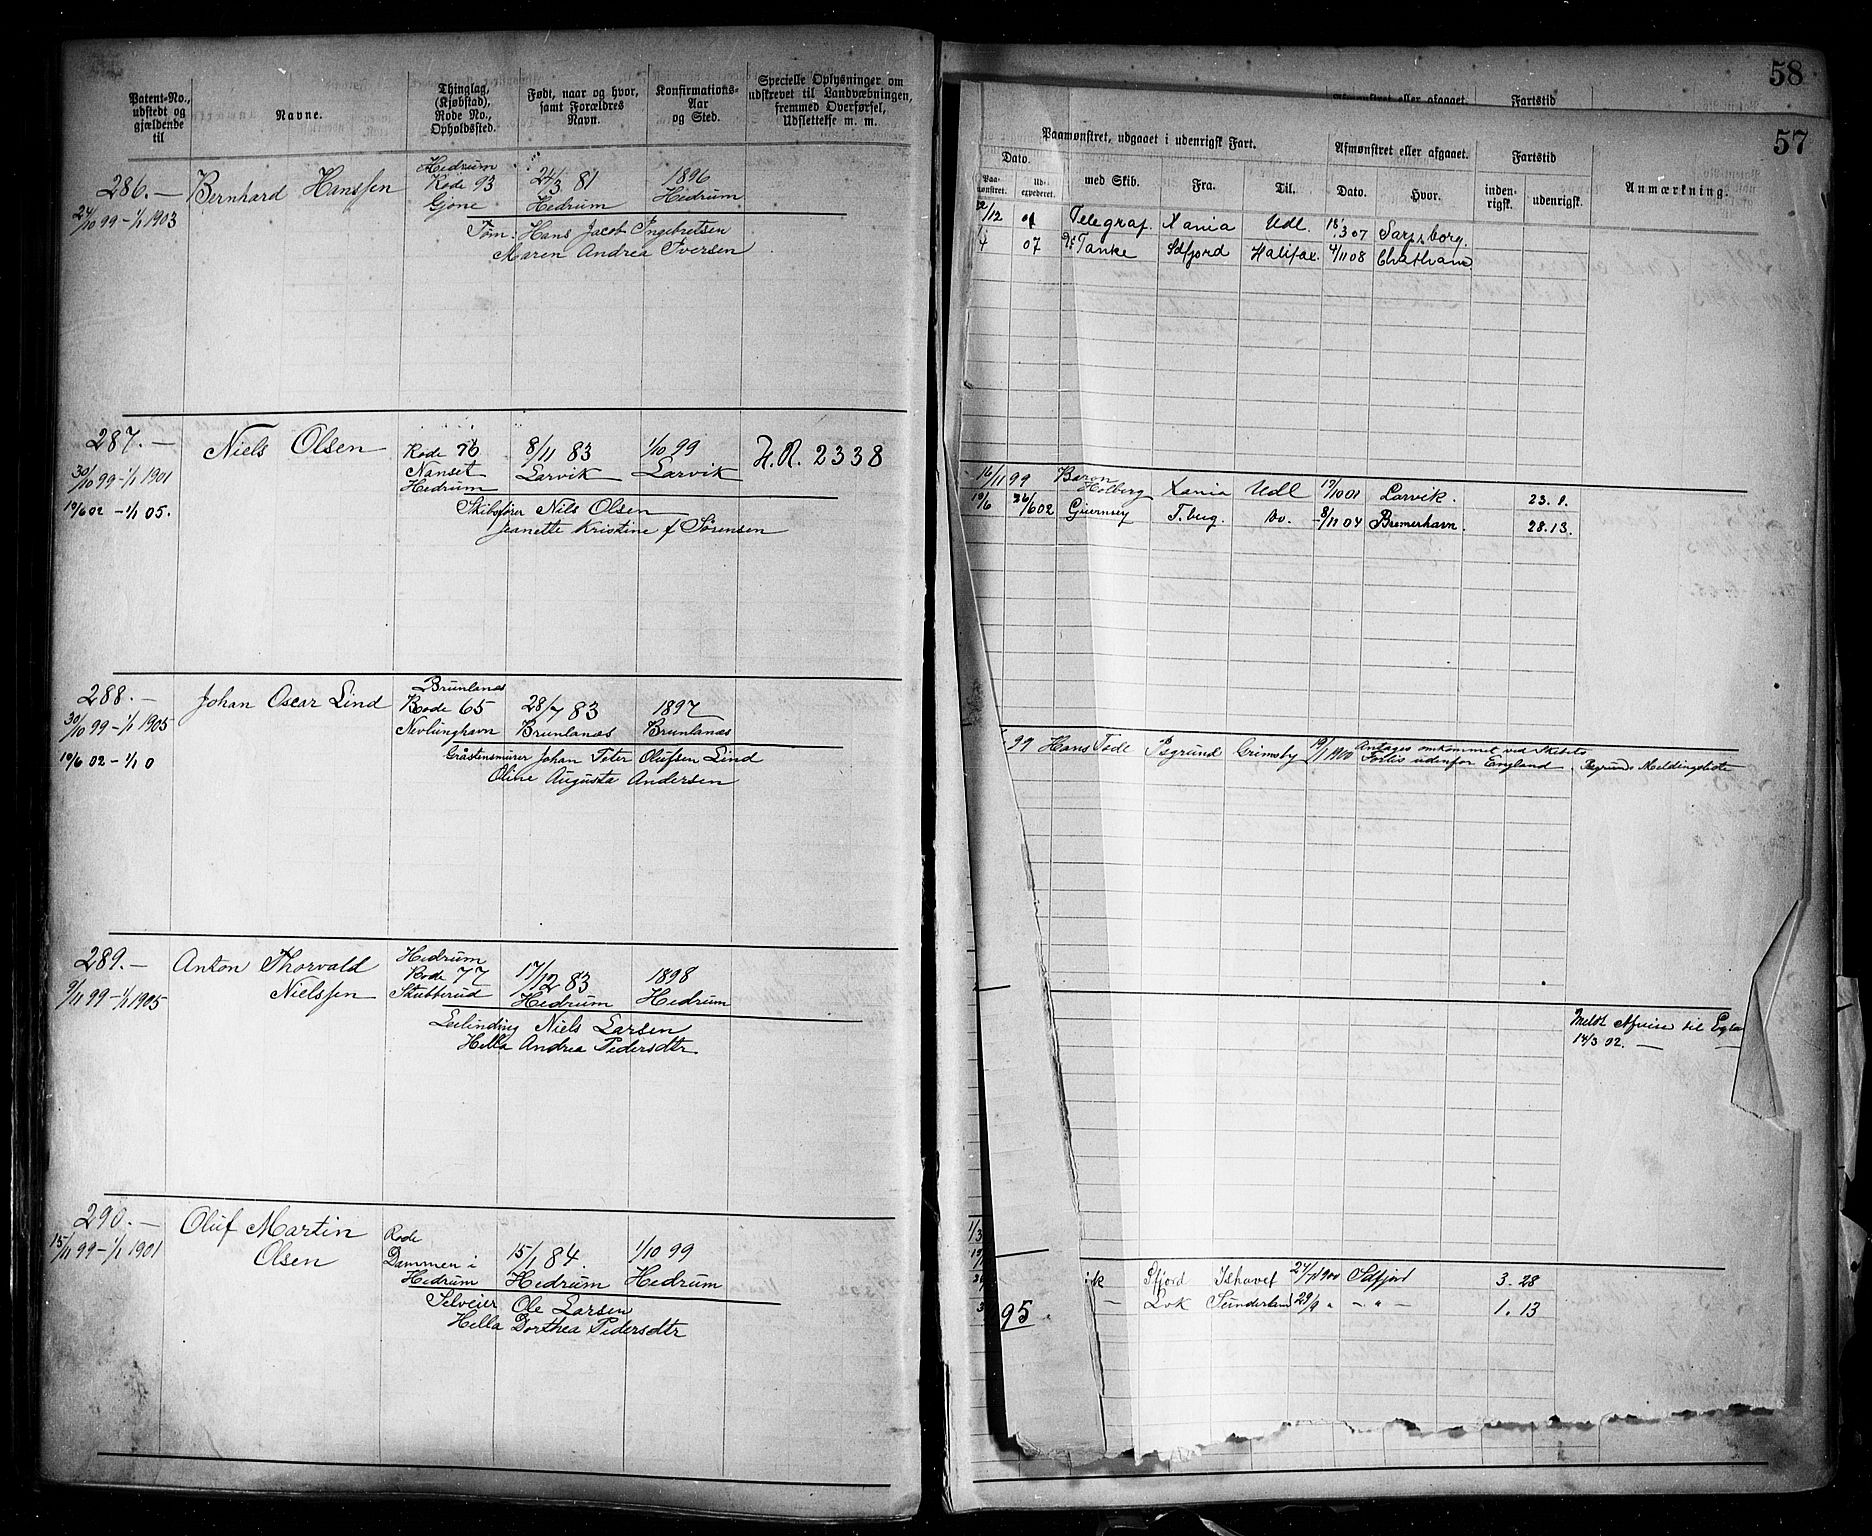 Patent-No., udstedt og gjældende til
Navne.
Thinglag, (Kjøbstad), Rode No., Opholdssted.
Født, naar og hvor, samt Forældres Navn.
Konfirmations-Aar og Sted.
Specielle Oplysninger om udskrevet til Landvæbningen, fremmed Overførsel, Udslettelse m. m.
286.— Bernhard Hanssen
Hedrum
Rode 93
Gjone
24/3 81
Hedrum
1896
Hedrum
24/10 99 – 1/1 1903
Tøm. Hans Jacob Ingebretsen
Maren Andrea Iversen
287.— Niels Olsen
Rode 76
Nanset
Hedrum
8/11 83
Larvik
1/10 99
Larvik
H.R. 2338
30/10 99 – 1/1 1901
19/6 02 – 1/1 05.
Skibsfører Nils Olsen
Jeanette Kristine f Sørensen
288.— Johan Oscar Lind
Brunlanæs
Rode 65
Nevlunghavn
28/7 83
Brunlanæs
1897
Brunlanæs
30/10 99 – 1/1 1905
19/6 02 – 1/1 0
Gråstensmurer Johan Peter Olufsen Lind
Oline Augusta Andersen
289.— Anton Thorvald
Nielssen
Hedrum
Rode 77
Skubberud
17/12 83
Hedrum
1898
Hedrum
9/11 99 – 1/1 1905
Leilinding Niels Larsen
Hella Andrea Pedersdtr
290.— Oluf Martin
Olsen
Rode
Dammen i
Hedrum
15/1 84.
Hedrum
1/10 99
Hedrum
15/11 99 – 1/1 1901
Selveier Ole Larsen
Hella Dorthea Pedersdtr
58
Afmønstret eller afgaaet. Fartstid
57
Paamønstret, udgaaet i udenrigsk Fart.
Afmønstret eller afgaaet.
Fartstid
Anmærkning.
Dato.
Paamønstret.
Udexpederet.
med Skib.
Fra.
Til.
Dato.
Hvor.
indenrigsk.
udenrigsk.
/12 01 Telegraf. Xania Udl. 18/3 07 Sarpsborg.
/4 07 Tanke Sdfjord Halifax. 4/11 08 Chatham
16/11 99 Baron Holberg Xania Udl 17/10 01 Larvik. 23. 1.
19/6 /6 02 Guernsey T.berg. Do. 8/11 04 Bremerhavn. 28. 13.
99 Hans Tode Psgrund Grimsby 19/1 1900 Antages omkommet ved Skibets
Forlis udenfor England. Psgrunds Meldingsliste
Meldt Afreise til
14/3 02. —
Sfjord Ishavet 27/7 1900 Sdfjord 3. 28
— Lvk Sunderland 29/9 " — " — 1. 13
95.